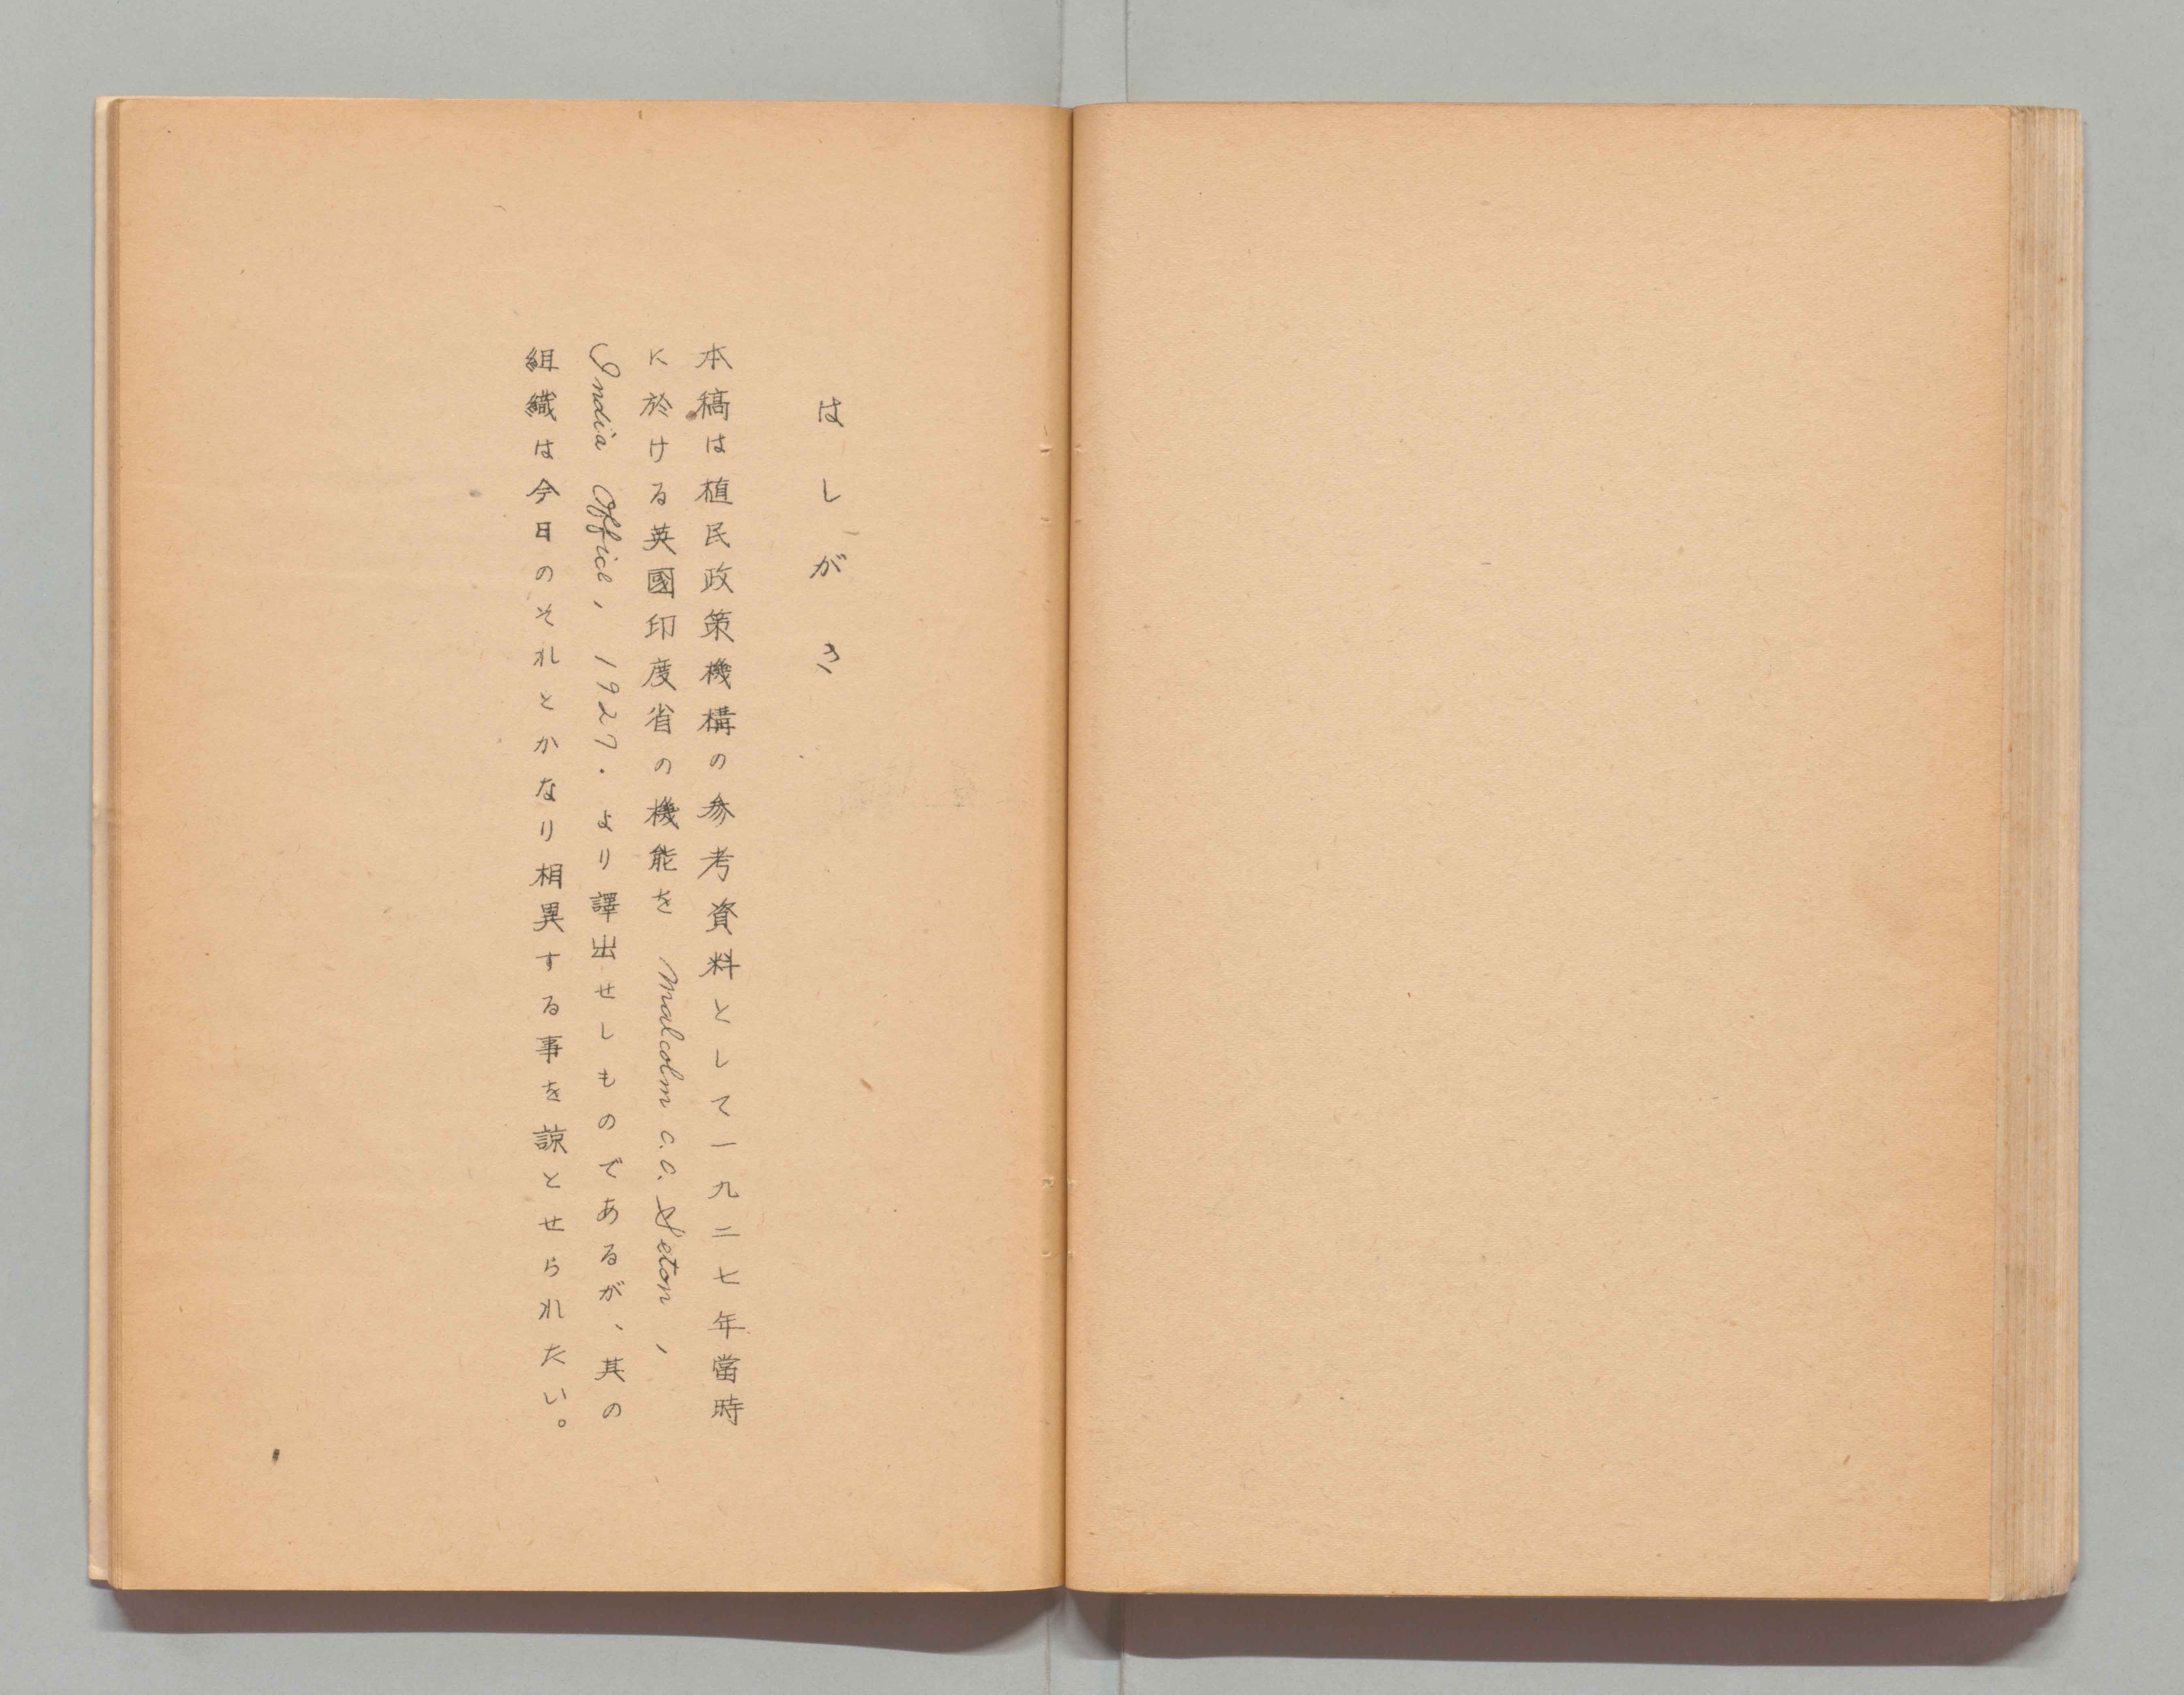 はしがき
本稿は植民政策機構の参考資料として一九二七年當時
に於ける英國印度省の機能を Malcolm C.C. Seton,
India Office, 1927. より譯出せしものであるが、其の
組織は今日のそれとかなり相異する事を諒とせられたい。